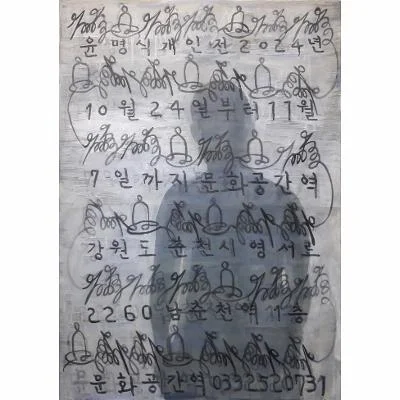 윤명식개인전2024년
10월24일부터11월
7일까지문화공간역
강원도춘천시영서로
2260남춘천역11층
문화공간역0332520731